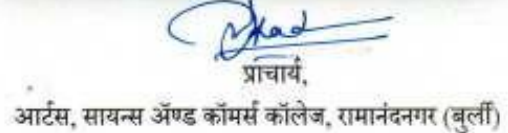 प्राचार्य,
आर्टस, सायन्स ॲण्ड कॉमर्स कॉलेज, रामानंदनगर (बुर्ली)